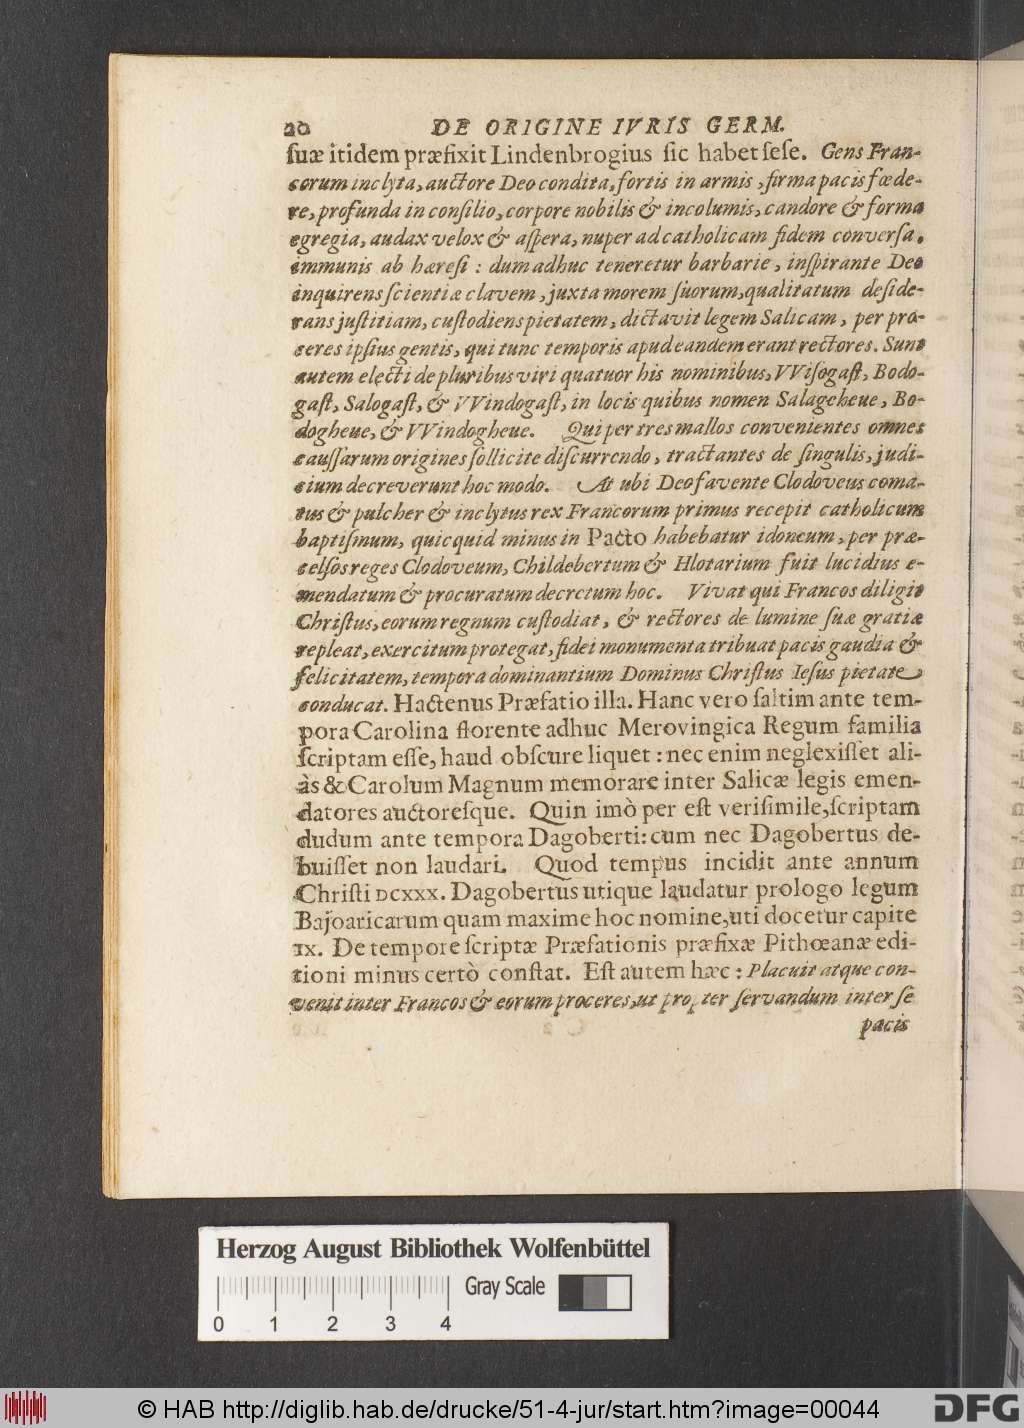 20 DE ORIGINE IVRIS GERM.
ſuæ itidem præfixit Lindenbrogius ſic habet ſeſe. Gens Fran-
corum inclyta, auctore Deo condita, fortis in armis, firma pacis fœde-
re, profunda in conſilio, corpore nobilis & incolumis, candore & forma
egregia, audax velox & aſpera, nuper ad catholicam fidem converſa,
immunis ab hæreſi : dum adhuc teneretur barbarie, inſpirante Deo
inquirens ſcientiæ clavem, juxta morem ſuorum, qualitatum deſide-
rans juſtitiam, cuſtodiens pietatem, dictavit legem Salicam, per pro-
ceres ipſius gentis, qui tunc temporis apud eandem erant rectores. Sunt
autem electi de pluribus viri quatuor his nominibus, VViſogaſt, Bodo-
gaſt, Salogaſt, & VVindogaſt, in locis quibus nomen Salageheue, Bo-
dogheue, & VVindogheue. Qui per tres mallos convenientes omnes
cauſſarum origines ſollicite diſcurrendo, tractantes de ſingulis, judi-
cium decreverunt hoc modo. At ubi Deo favente Clodoveus coma-
tus & pulcher & inclytus rex Francorum primus recepit catholicum
baptiſmum, quicquid minus in Pacto habebatur idoneum, per præ-
celſos reges Clodoveum, Childebertum & Hlotarium fuit lucidius e-
mendatum & procuratum decretum hoc. Vivat qui Francos diligit
Chriſtus, eorum regnum cuſtodiat, & rectores de lumine ſuæ gratiæ
repleat, exercitum protegat, fidei monumenta tribuat pacis gaudia &
felicitatem, tempora dominantium Dominus Chriſtus Ieſus pietate
conducat. Hactenus Præfatio illa. Hanc vero ſaltim ante tem-
pora Carolina florente adhuc Merovingica Regum familia
ſcriptam eſſe, haud obſcure liquet : nec enim neglexiſſet ali-
às & Carolum Magnum memorare inter Salicæ legis emen-
datores auctoreſque. Quin imò per eſt veriſimile, ſcriptam
dudum ante tempora Dagoberti: cum nec Dagobertus de-
buiſſet non laudari. Quod tempus incidit ante annum
Chriſti DCXXX. Dagobertus utique laudatur prologo legum
Bajoaricarum quam maxime hoc nomine, uti docetur capite
IX. De tempore ſcriptæ Præfationis præfixæ Pithœanæ edi-
tioni minus certò conſtat. Eſt autem hæc : Placuit atque con-
venit inter Francos & eorum proceres, ut propter ſervandum inter ſe
pacis
Herzog August Bibliothek Wolfenbüttel
Gray Scale
0 1 2 3 4
© HAB http://diglib.hab.de/drucke/51-4-jur/start.htm?image=00044
DFG